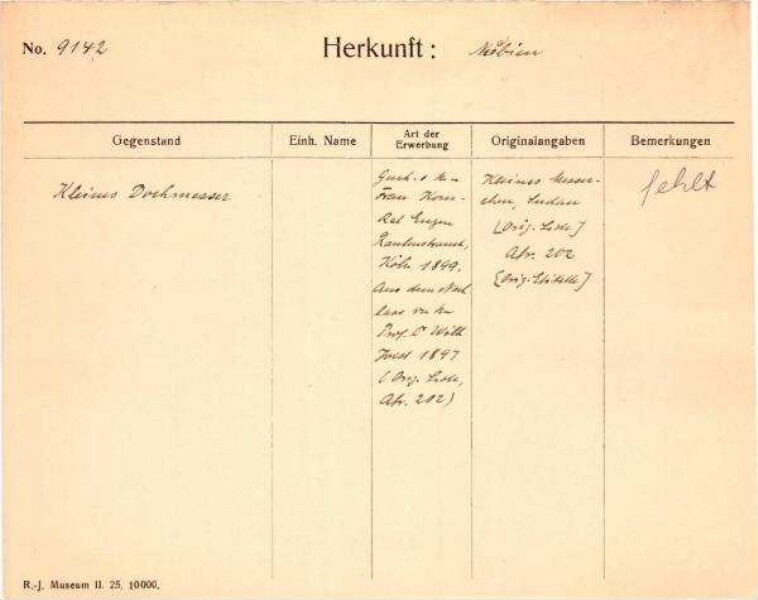 No. 9142
Herkunft: Nubien
Gegenstand
Einh. Name
Art der
Erwerbung
Originalangaben
Bemerkungen
Kleines Dochmesser
Gesch. v.
Frau Kom-
Rat Eugen
Rautenstrauch,
Köln 1899.
Aus dem Nach
lass von
Prof. Dr Wilh
Joest 1897
(Orig. Liste,
Afr. 202)
Kleines Messer-
chen, Sudan
[Orig. Liste]
Afr. 202
[Orig. Etikette]
fehlt
R.-J. Museum II. 25. 10000.